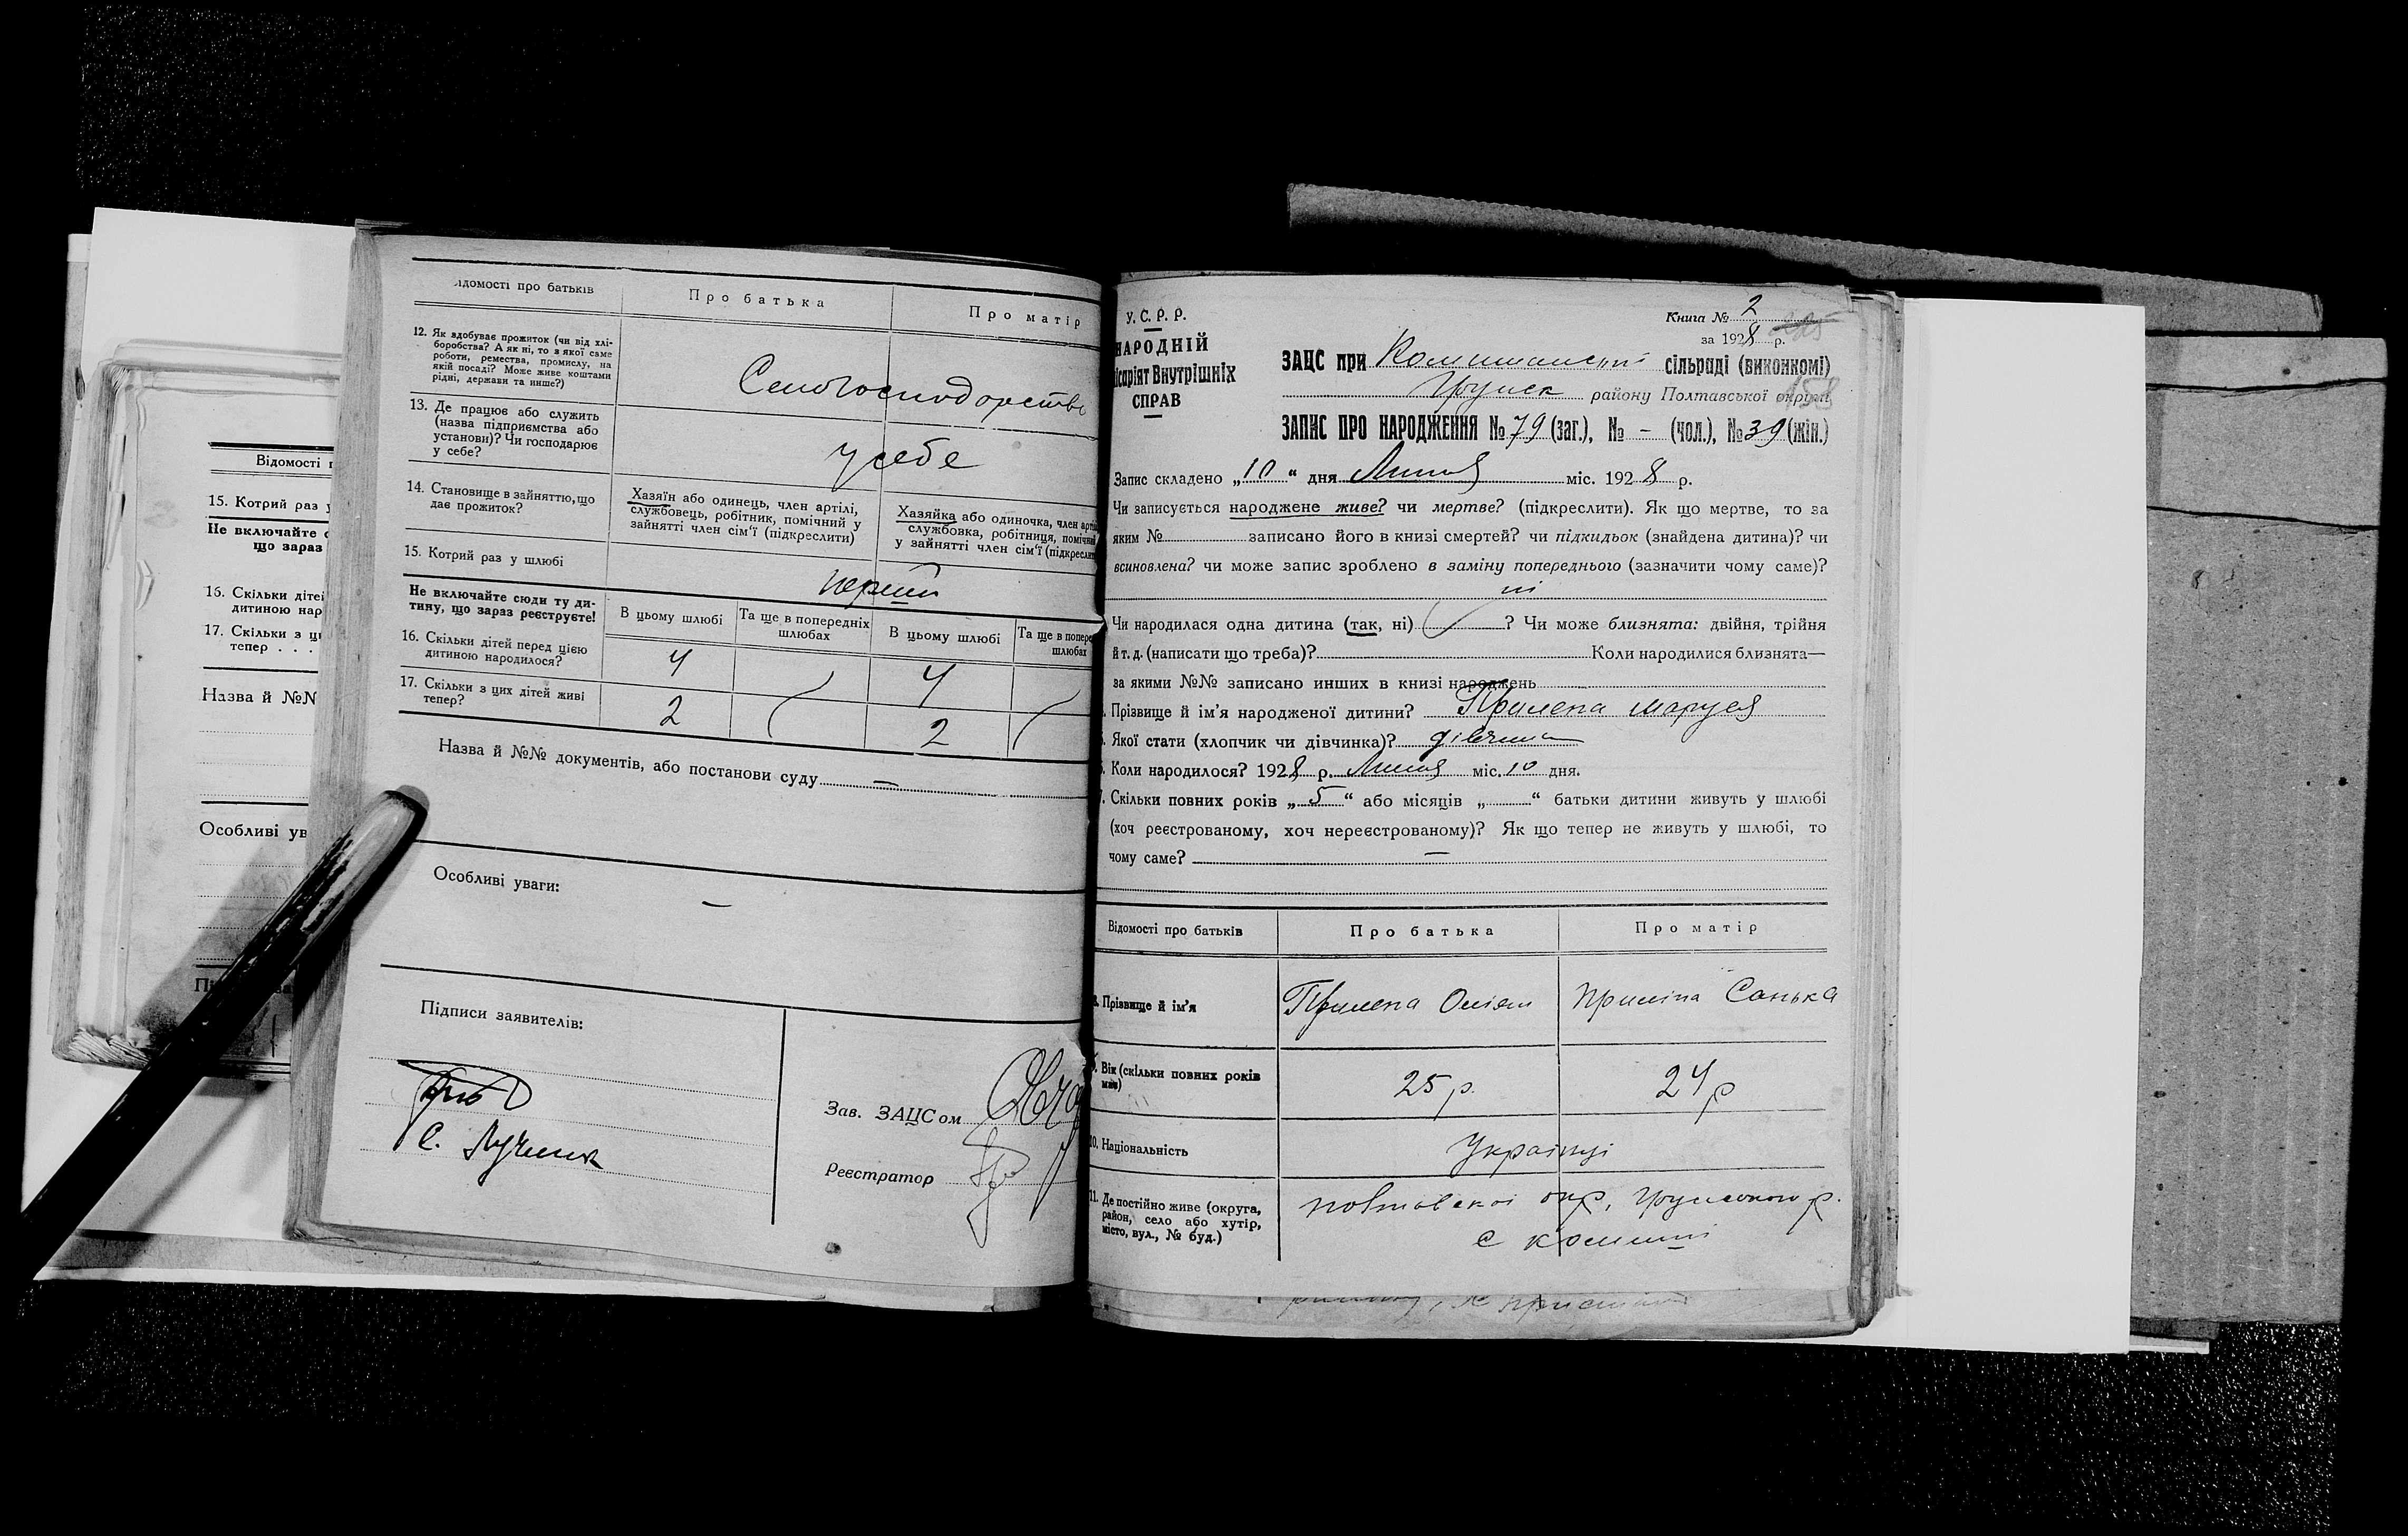 Відомості п
15. Котрий раз у
Не включайте с
що зараз
16. Скільки дітей
дитиною нар
17. Скільки з ци
тепер . . .
Назва й №№
Особливі ув
ідомості про батьків
Про батька
Про матір
12. Як здобуває прожиток (чи від хлі-
боробства? А як ні, то з якої саме
роботи, ремества, промислу, на
якій посаді? Може живе коштами
рідні, держави та инше?)
Сел.господарство
13. Де працює або служить
(назва підприємства або
установи)? Чи господарює
у себе?
у себе
14. Становище в зайняттю, що
дає прожиток?
Хазяїн або одинець, член артілі,
службовець, робітник, помічний у
зайнятті член сім'ї (підкреслити)
Хазяйка або одиночка, член артіл
службовка, робітниця, помічни
у зайнятті член сім'ї (підкреслит
15. Котрий раз у шлюбі
перший
Не включайте сюди ту ди-
тину, що зараз реєструєте!
В цьому шлюбі
Та ще в попередніх
шлюбах
В цьому шлюбі
Та ще в попере
шлюбах
16. Скільки дітей перед цією
дитиною народилося?
4 4
17. Скільки з цих дітей живі
тепер?
2 2
Назва й №№ документів, або постанови суду —
Особливі уваги:
—
Підписи заявителів:
Зав. ЗАЦСом
Реєстратор
У. С. Р. Р.
НАРОДНІЙ
ісаріят Внутрішніх
СПРАВ
Книга № 2
за 1928 р.
158
ЗАЦС при сільраді (виконкомі)
Грунск району Полтавської округи
ЗАПИС ПРО НАРОДЖЕННЯ № 79 (заг.), № – (чол.), № 39 (жін.)
Запис складено „10“ дня Липня міс. 1928 р.
Чи записується народжене живе? чи мертве? (підкреслити). Як що мертве, то за
яким № записано його в книзі смертей? чи підкидьок (знайдена дитина)? чи
всиновлена? чи може запис зроблено в заміну попереднього (зазначити чому саме)?
ні
Чи народилася одна дитина (так, ні) ? Чи може близнята: двійня, трійня
й т. д. (написати що треба)? Коли народилися близнята—
за якими №№ записано инших в книзі народжень
. Прізвище й ім'я народженої дитини? Прилепа Маруся
. Якої стати (хлопчик чи дівчинка)? дівчина
. Коли народилося? 1928 р. Липня міс. 10 дня.
. Скільки повних років „5“ або місяців „ “ батьки дитини живуть у шлюбі
(хоч реєстрованому, хоч нереєстрованому)? Як що тепер не живуть у шлюбі, то
чому саме? —
Відомості про батьків
Про батька
Про матір
. Прізвище й ім'я
Прилепа
Приліпа Санька
. Вік (скільки повних років
має)
25 р.
24 р
10. Національність
Українці
11. Де постійно живе (округа,
район, село або хутір,
місто, вул., № буд.)
полтавскої окр, Грунського р.
с комиші